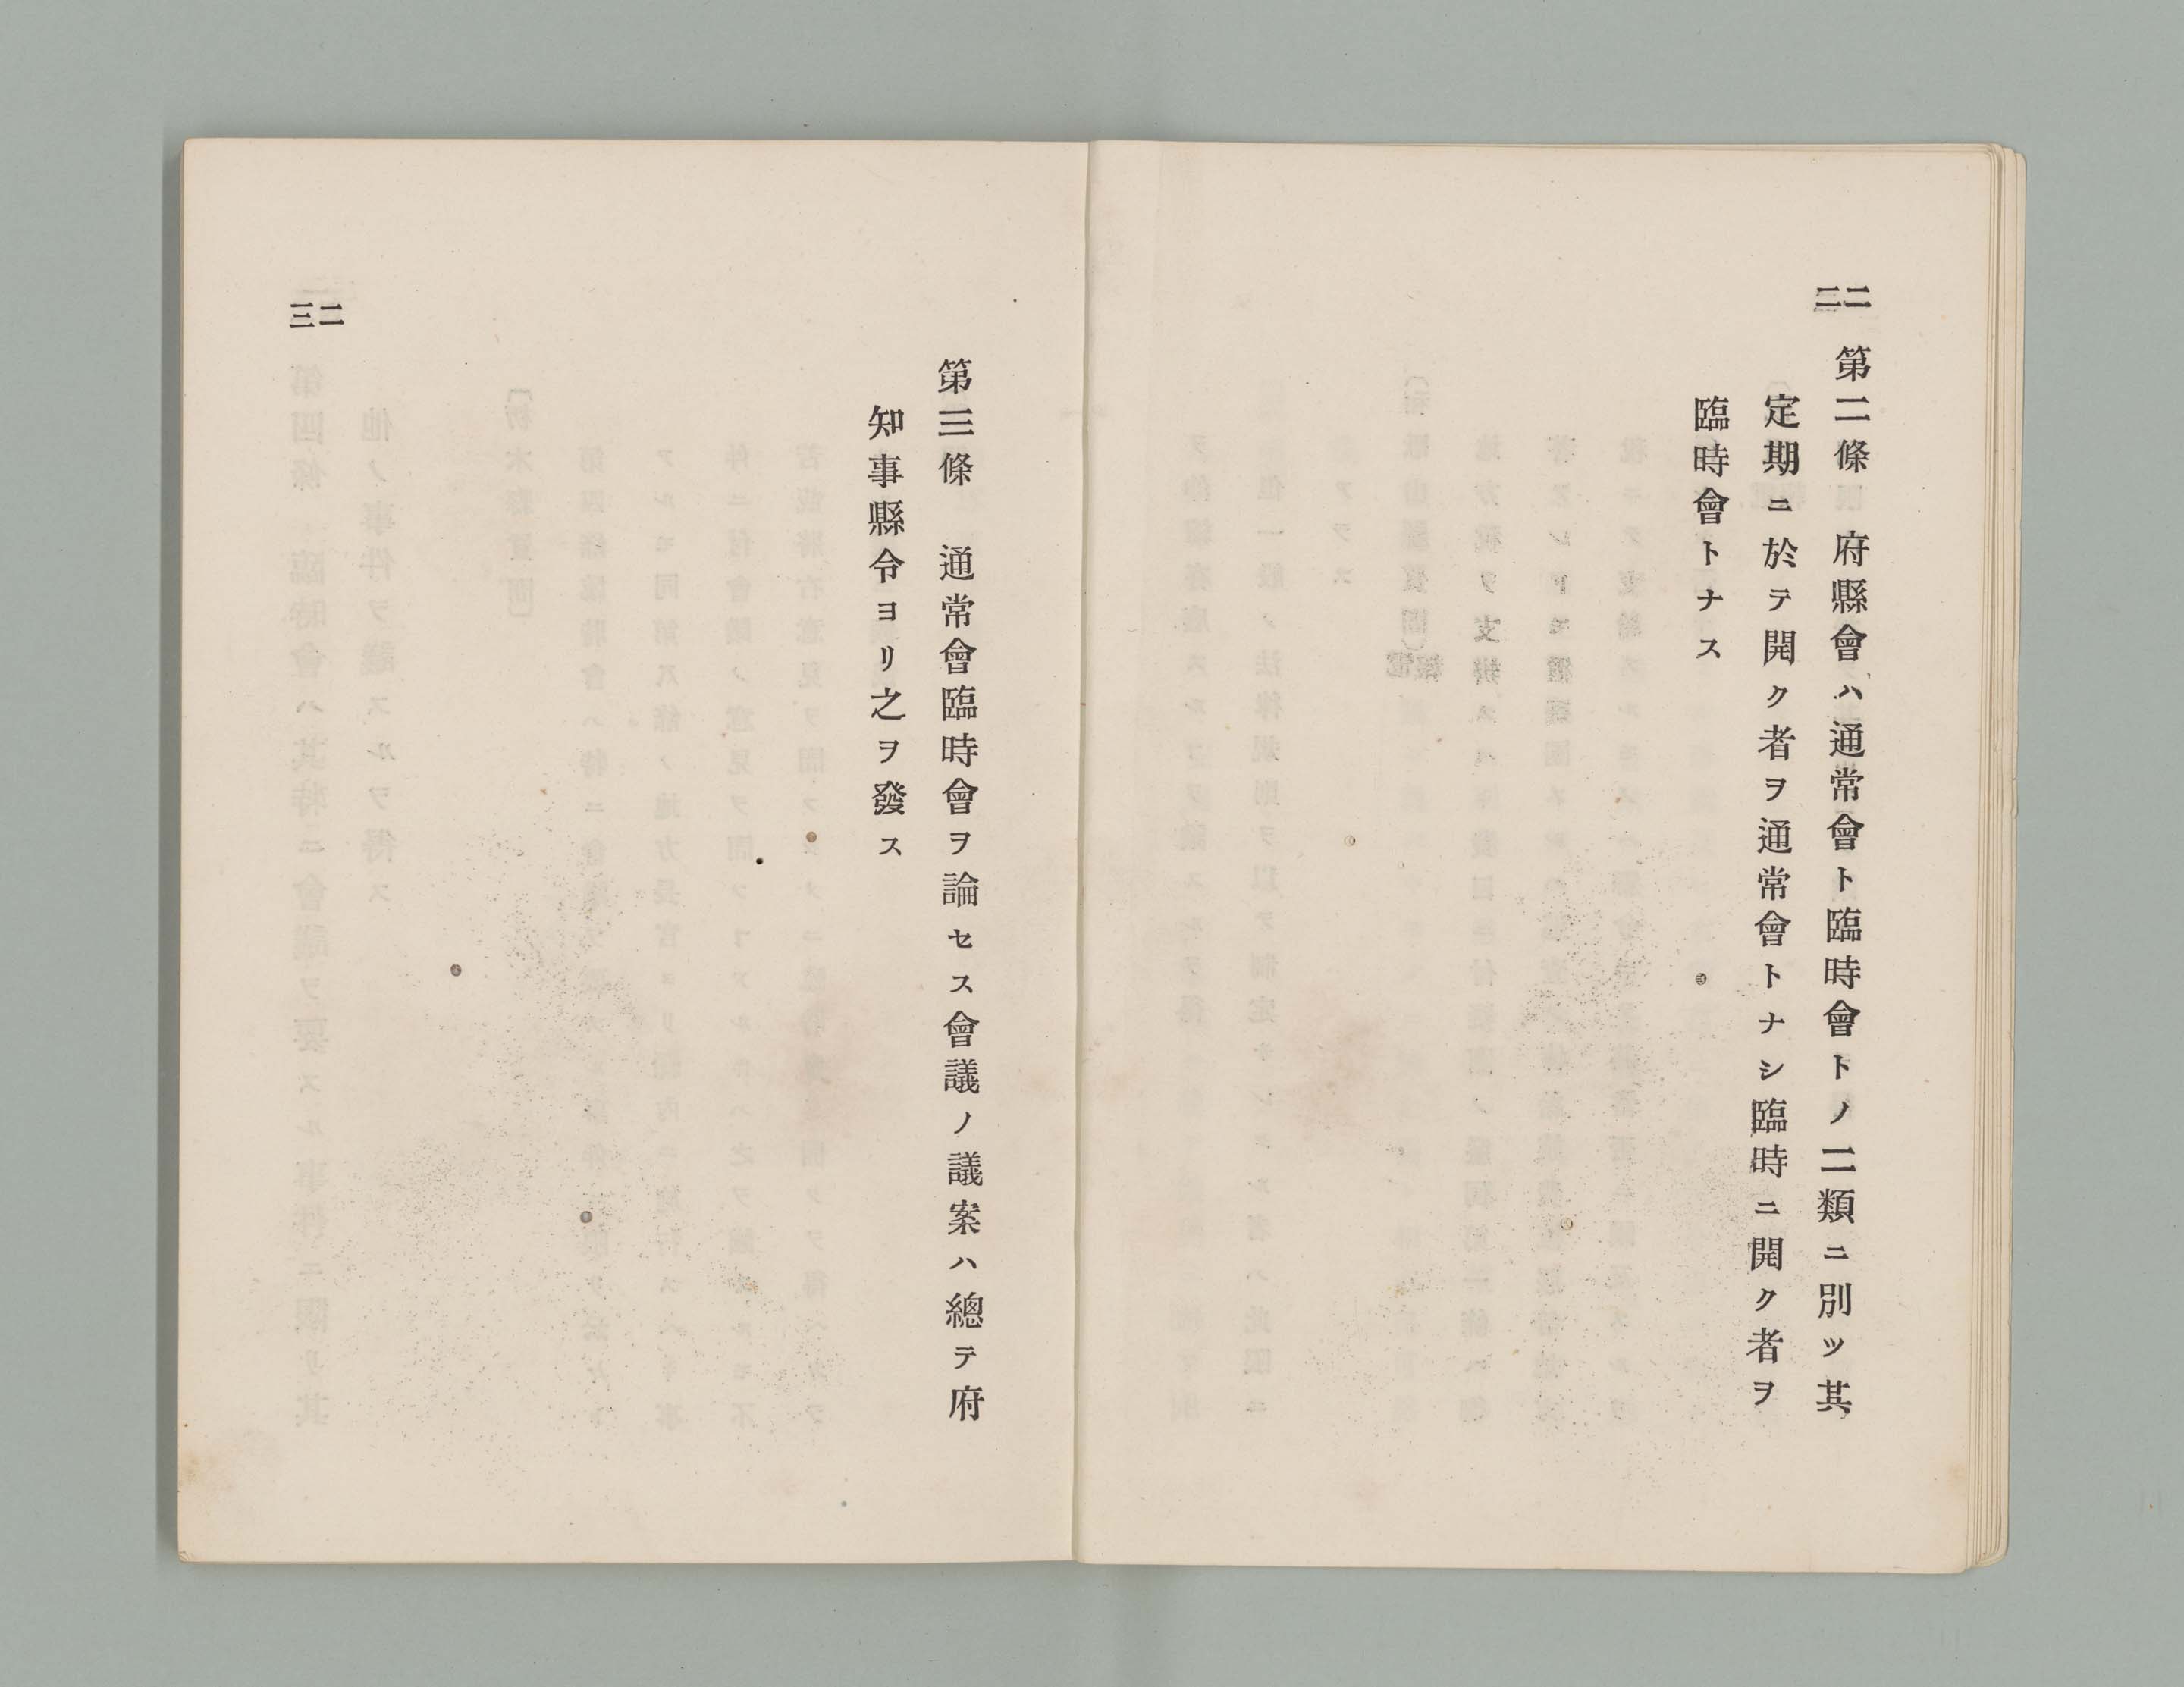 二二
第二條　府縣會ハ通常會ト臨時會トノ二類ニ別ツ其
定期ニ於テ開ク者ヲ通常會トナシ臨時ニ開ク者ヲ
臨時會トナス
第三條　通常會臨時會ヲ論セス會議ノ議案ハ總テ府
知事縣令ヨリ之ヲ發ス
二三